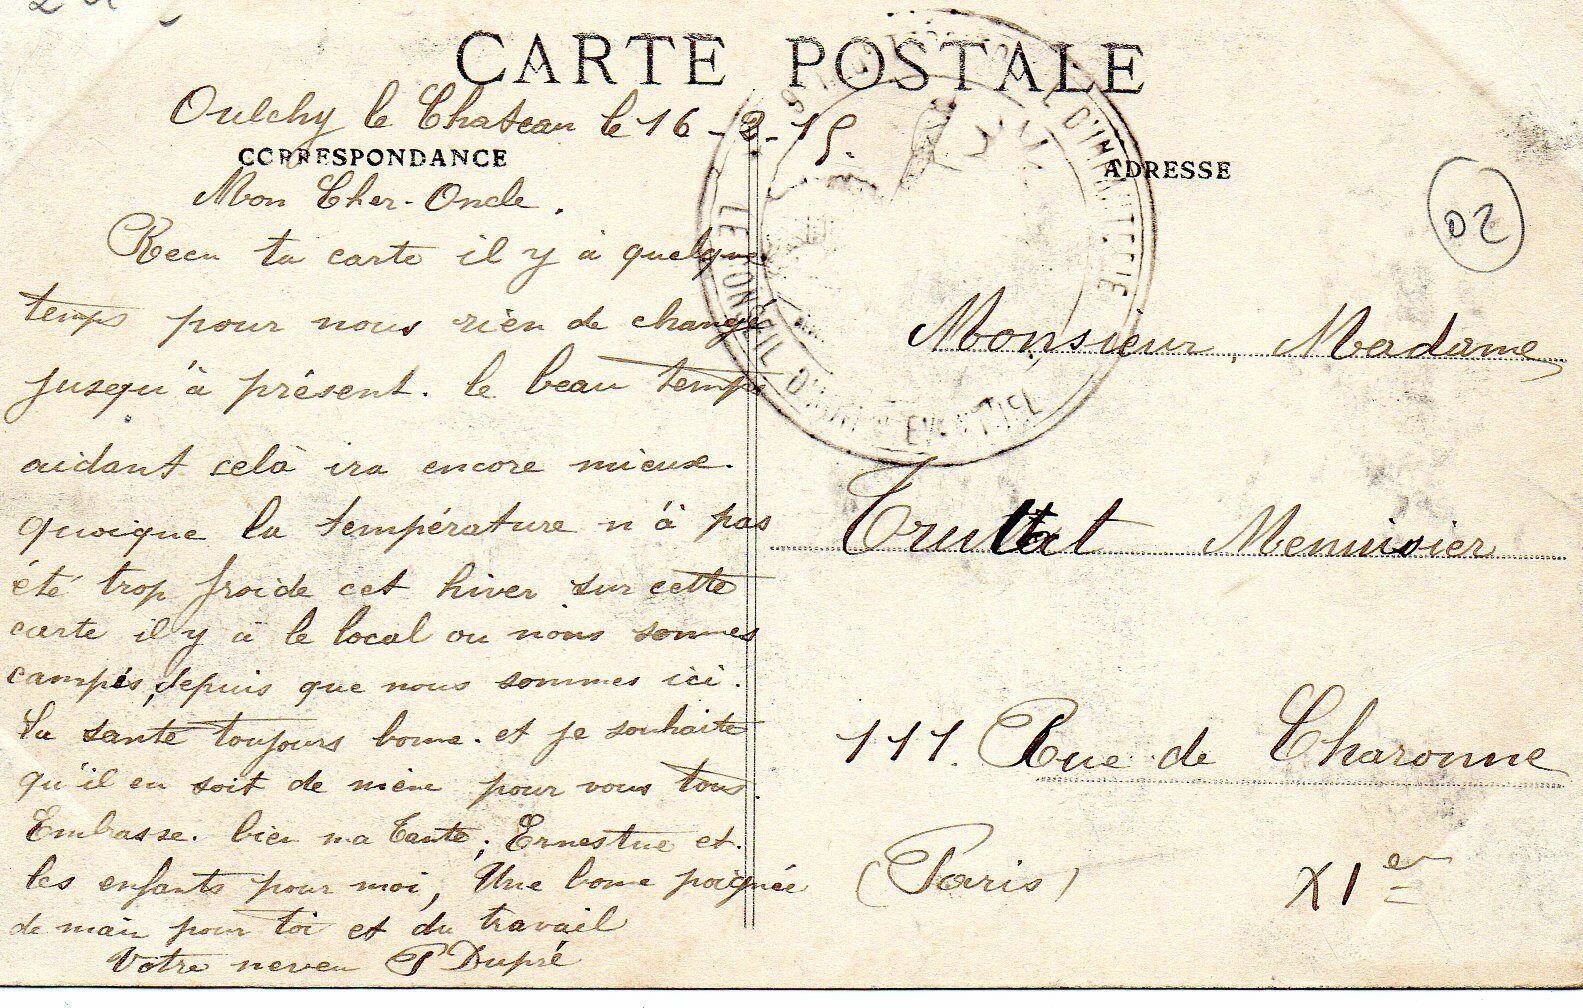 CARTE POSTALE
Oulchy le Chateau le 16-2-15.
CORRESPONDANCE
Mon Cher-Oncle.
Recu ta carte il y à quelque
temps pour nous rien de changé
jusqu'à présent. le beau temps
aidant celà ira encore mieux.
quoique la température n'à pas
été trop froide cet hiver sur cette
carte il y à le local ou nous sommes
campés, depuis que nous sommes ici.
La santé toujours bonne. et je souhaite
qu'il en soit de même pour vous tous.
Embrasse. bien ma Tante, Ernestine et.
les enfants pour moi, Une bonne poignée
de main pour toi et du travail
Votre neveu P Dupré
ADRESSE
02
Monsieur, Madame
Truttat Menuisier
111. Rue de Charonne
(Paris) XIer
D'INFANTERIE
LE CONSEIL D'ADMON EVENTUEL